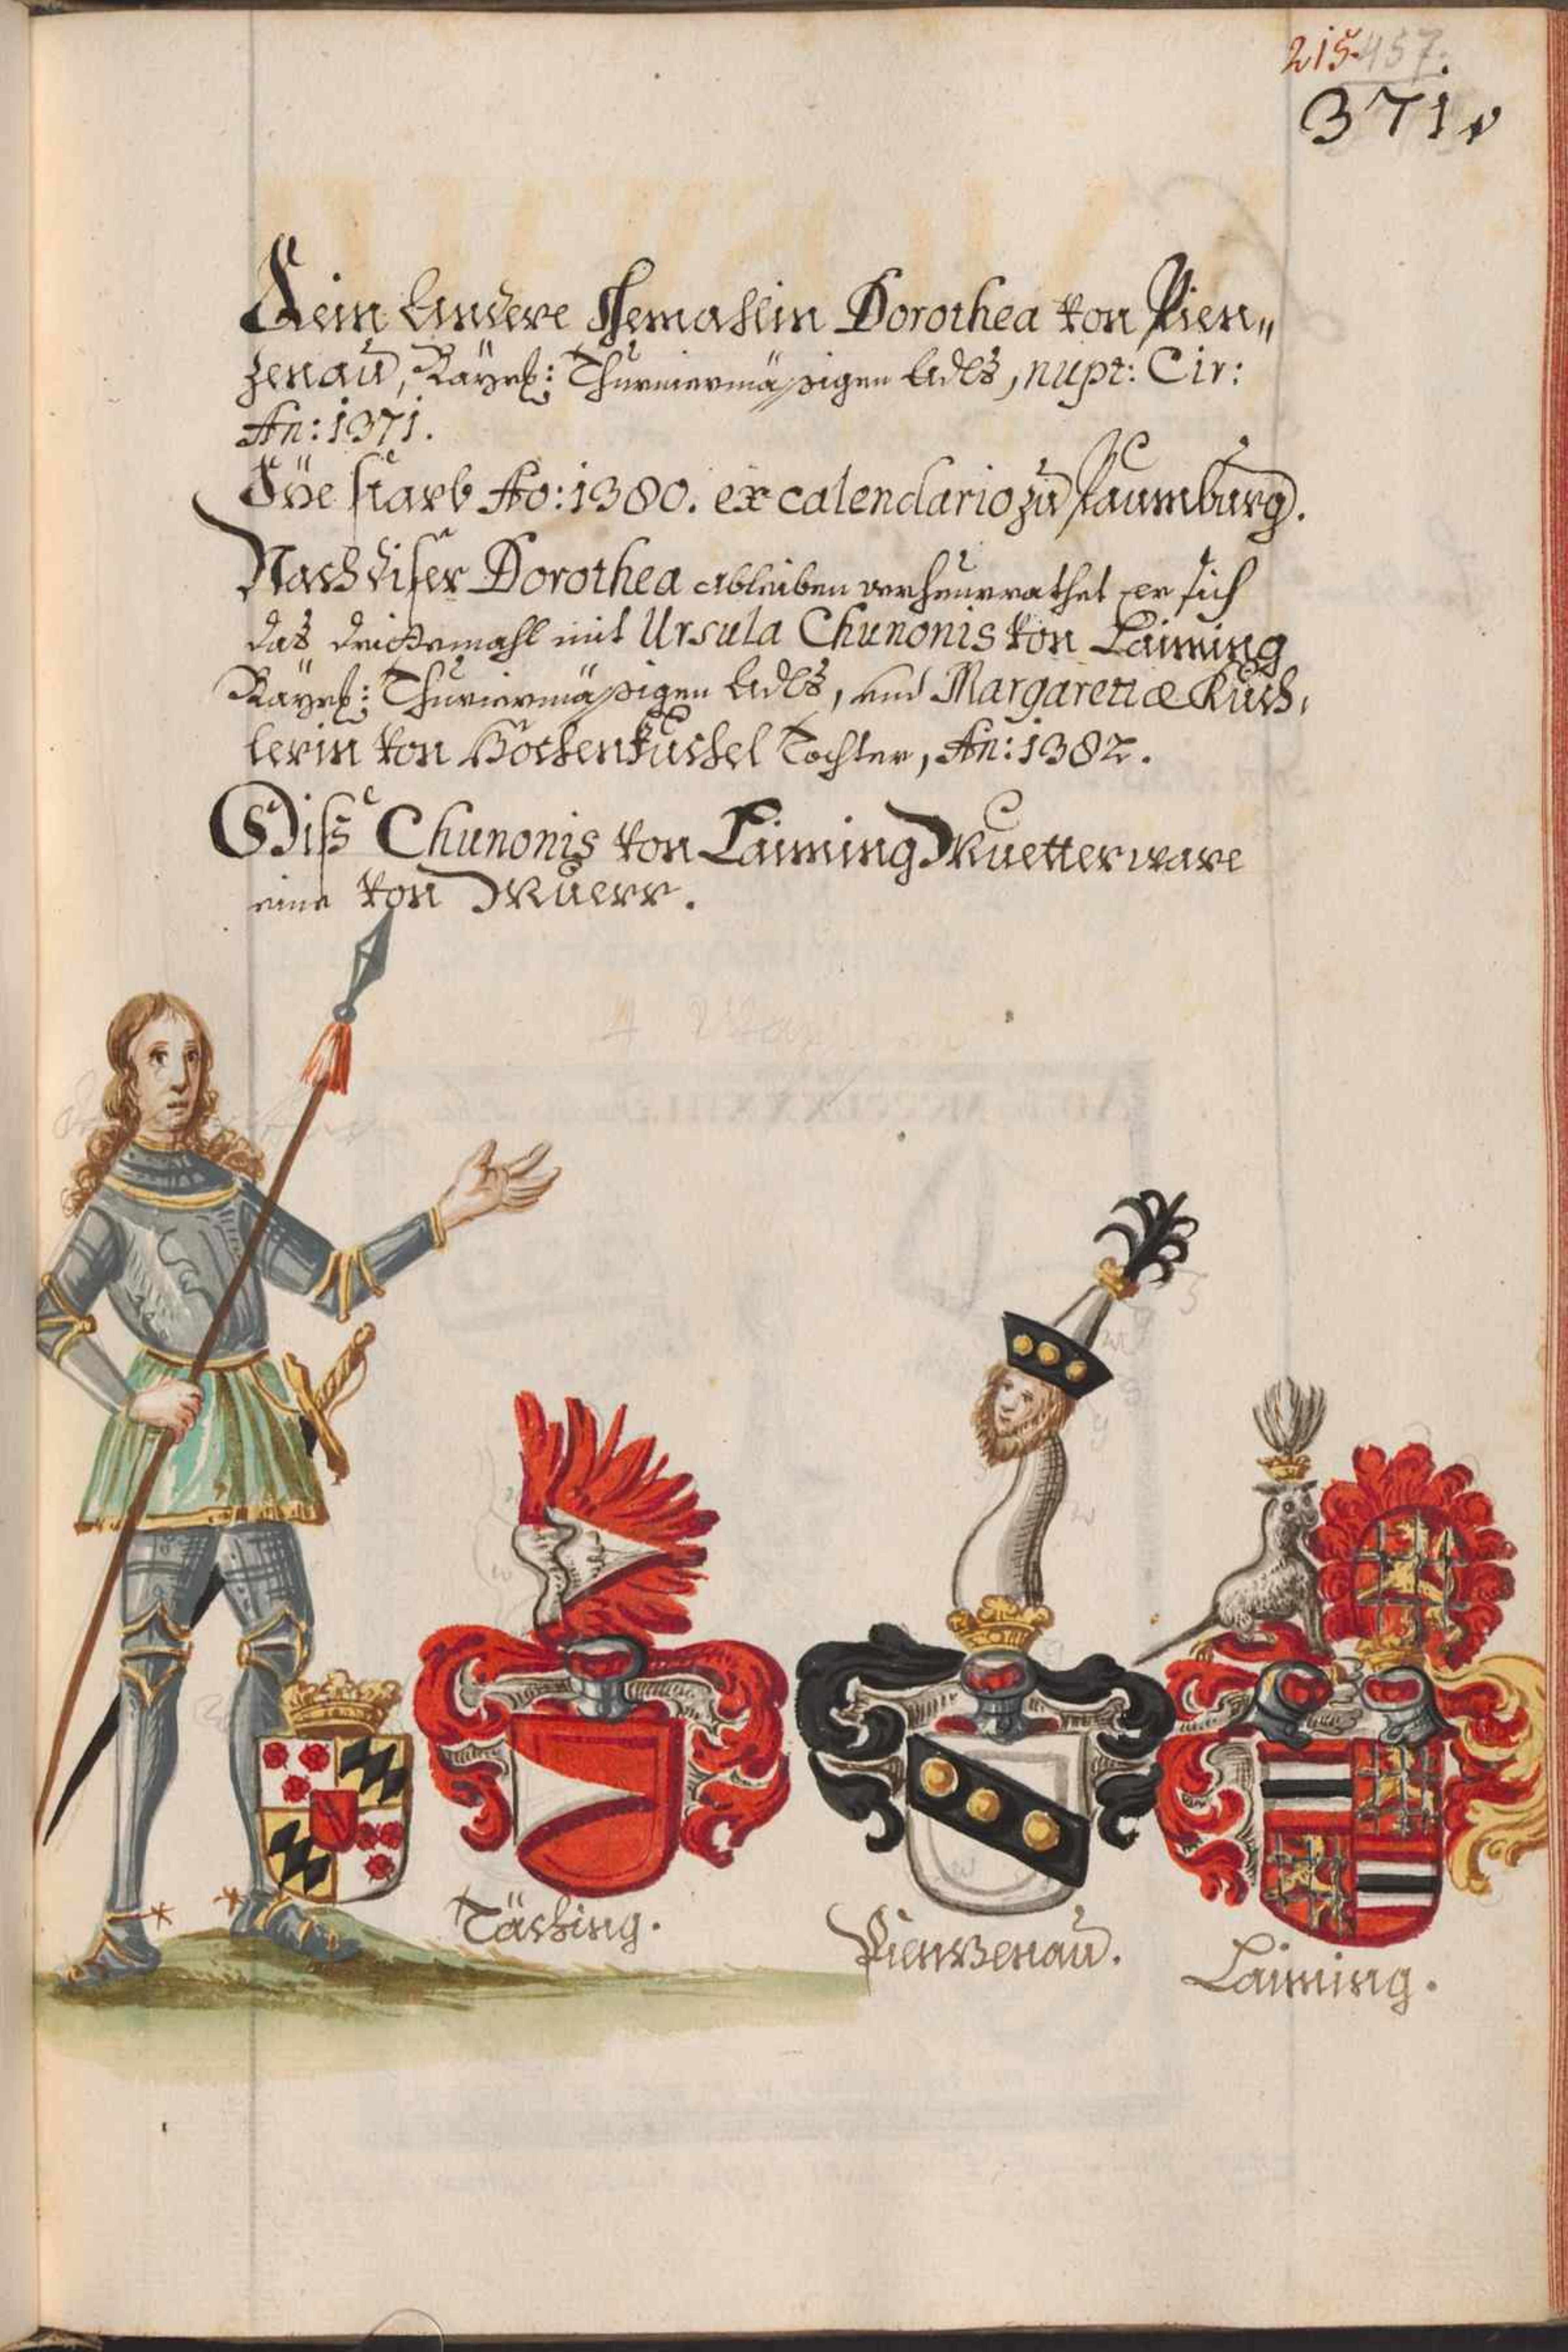 215 457.
371
Sein Andere Gemahlin Dorothea von Pien„
zenaŭ, Bayrs: Thurniermäßigen Adls, nupt: Cir:
An: 1371.
Die starb Ao: 1380. ex calendario zŭ Paumbŭrg.
Nach diser Dorothea ableiben verheŭrrathet er sich
das drittemahl mit Ursula Chunonis von Laiming
Bayrs: Thurniermäßigen Adls, und Margaretiæ Kŭch,
lerin von Hochenkuchel Tochter, An: 1382.
Diss Chunonis von Laiming Muetter ware
eine von Mŭerr.
Täching.
Pienzenaŭ.
Laiming.